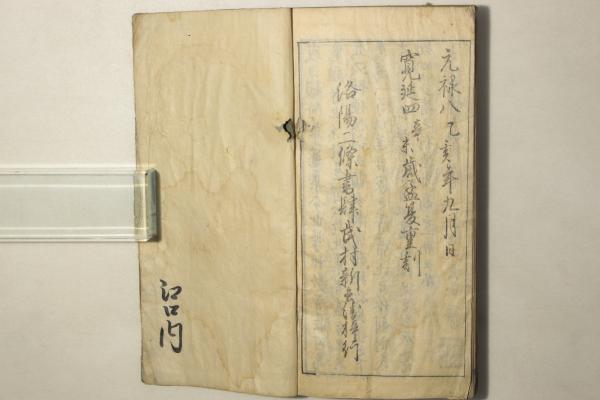 元禄八乙亥年九月日
寛延四辛未歳孟夏重刻
洛陽二條書肆武村新兵衛梓行
江口内